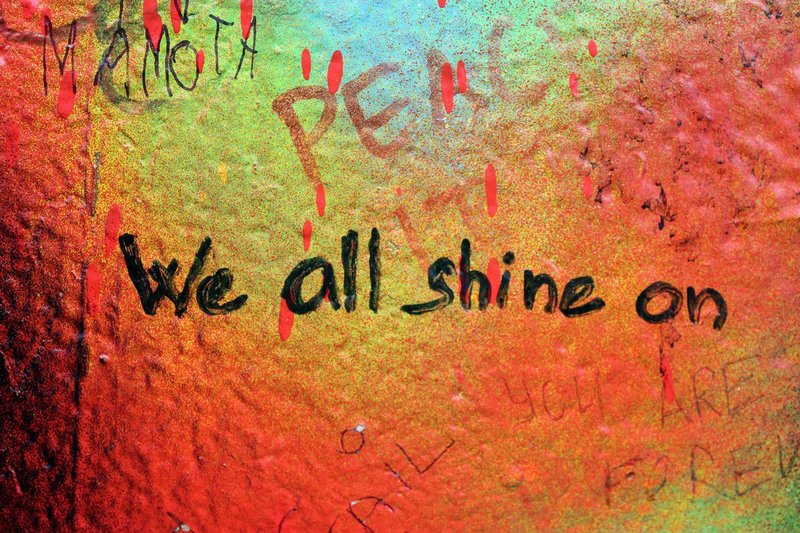 MAMOTA
PEACE
IT
We all shine on
YOU ARE
FOREV